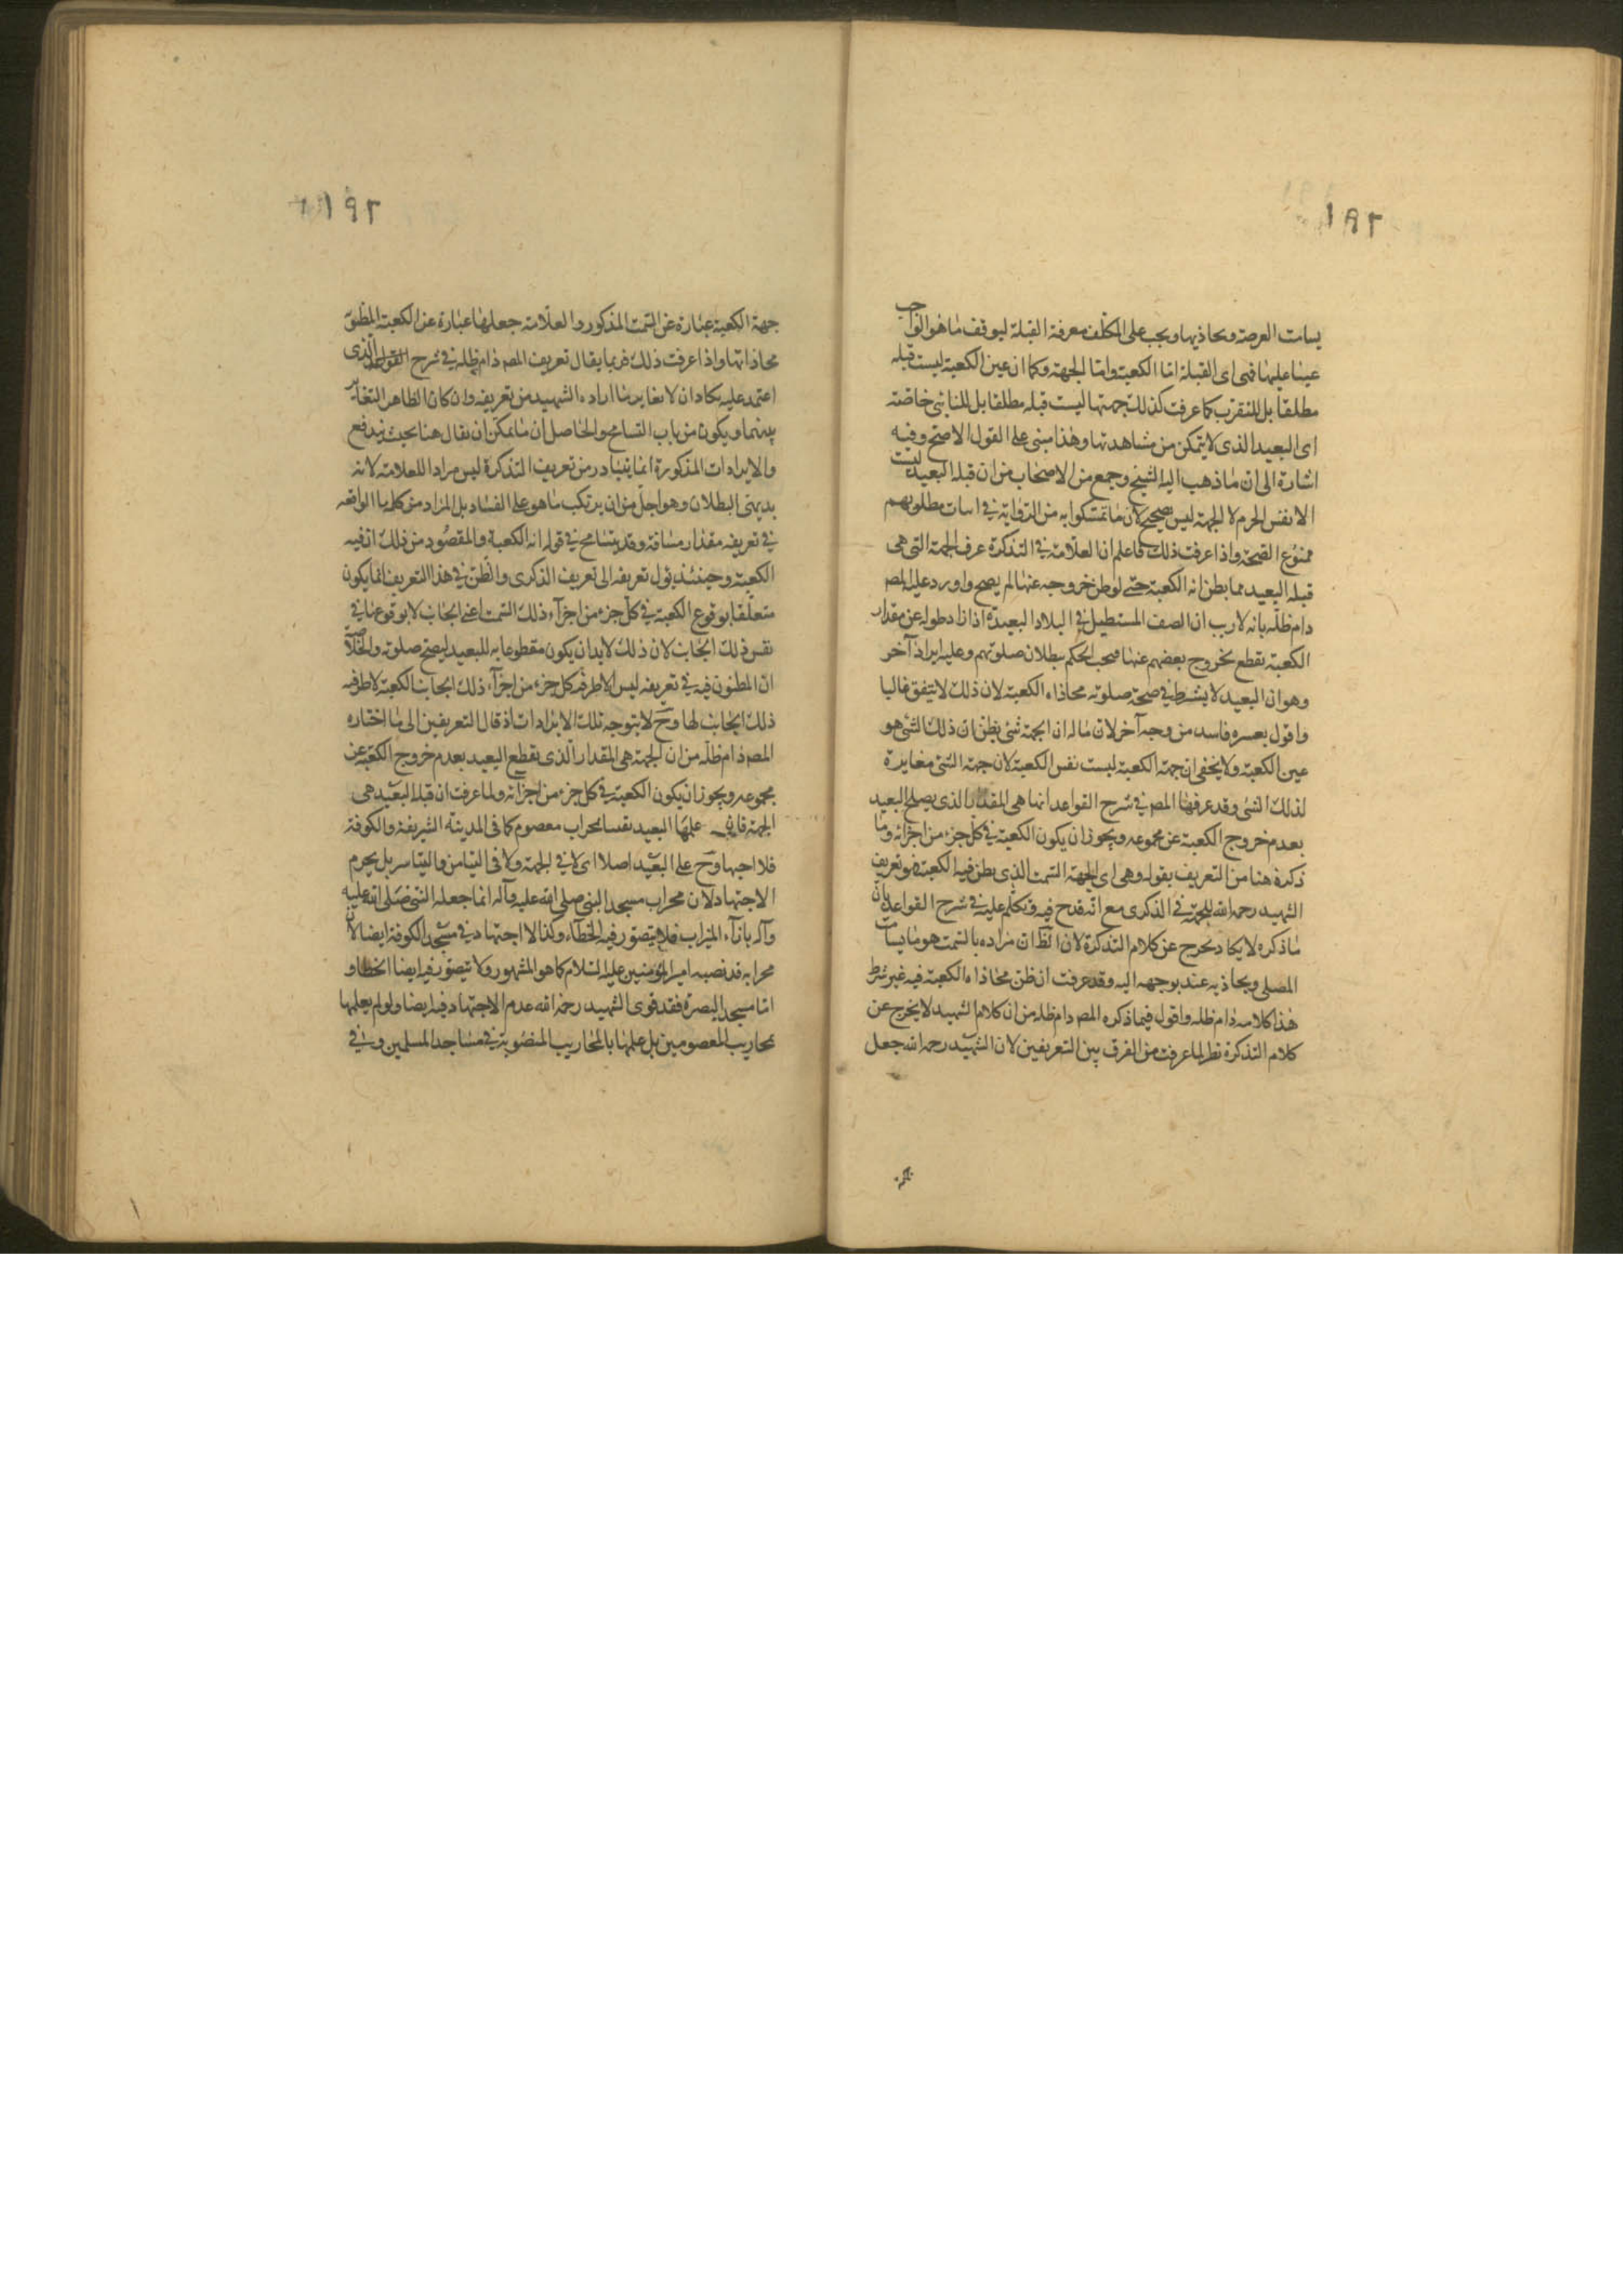 ١٩٢
يسامت العرصة ويحاذيها ويجب على المكلف معرفة القبلة ليوقف ما هو الواجب
عينا عليها فهى اى القبلة اما الكعبة واما الجهة وكما ان عين الكعبة ليست قبلة
مطلقا بل للمتقرب كما عرفت كذلك جهتها ليست قبله مطلقا بل للنائى خاصة
اى البعيد الذى لا يتمكن من مشاهدتها وهذا مبنى على القول الاصح وفيه
اشارة الى ان ما ذهب اليه الشيخ وجمع من الاصحاب من ان قبلة البعيد ليست
الا نفس الحرم لا الجهة ليس بصحيح لان ما تمسكوا به من الرواية فى اثبات مطلوبهم
ممنوع الصحة واذا عرفت ذلك فاعلم ان العلامة فى التذكرة عرف الجهة التى هى
قبلة البعيد مما يظن انه الكعبة حتى لو ظن خروجه عنها لم يصح واورد عليه المص
دام ظله بانه لا ريب ان الصف المستطيل فى البلاد البعيدة اذا زاد طوله عن مقدار
الكعبة نقطع بخروج بعضهم عنها فيجب الحكم ببطلان صلوتهم وعليه ايراد آخر
وهو ان البعيد لا يشترط فى صحة صلوته محاذاة الكعبة لان ذلك لا يتفق غالبا
واقول بعسره فاسد من وجه آخر لان ماله ان الجهة شئ يظن ان ذلك الشئ هو
عين الكعبة ولا يخفى ان جهة الكعبة ليست نفس الكعبة لان جهة الشئ مغايرة
لذلك الشئ وقد عرفها المص فى شرح القواعد انما هى المقدار الذى يصلح البعيد
بعدم خروج الكعبة عن مجموعه ويجوز ان يكون الكعبة فى كل جزء من اجزائه وما
ذكره هنا من التعريف بقوله وهى اى الجهة السمت الذى يظن فيه الكعبة هو تعريف
الشهيد رحمه الله للجهة فى الذكرى مع انه قدح فيه وتكلم عليه فى شرح القواعد بان
ما ذكره لا يكاد يخرج عن كلام التذكرة لان الظ ان مراده بالسمت هو ما يسامت
المصلى ويحاذيه عند توجهه اليه وقد عرفت ان ظن محاذاة الكعبة فيه غير شرط
هذا كلامه دام ظله واقول فيما ذكره المص دام ظله من ان كلام الشهيد لا يخرج عن
كلام التذكرة نظر لما عرفت من الفرق بين التعريفين لان الشهيد رحمه الله جعل
١٩٢
جهة الكعبة عبارة عن السمت المذكور والعلامة جعلها عبارة عن الكعبة المظنون
محاذاتها واذا عرفت ذلك فربما يقال تعريف المص دام ظله فى شرح القواعد الذى
اعتمد عليه يكاد ان لا يغاير ما اراده الشهيد من تعريفه وان كان الظاهر التغاير
بينهما ويكون من باب التسامح والحاصل ان ما يمكن ان يقال هنا بحيث يندفع
والايرادات المذكورة انما يتبادر من تعريف التذكرة ليس مرادا للعلامة لانه
بديهى البطلان وهو اجل من ان يرتكب ما هو على الفساد بل المراد من كلمة ما الواقعة
فى تعريفه مقدار مسافة وقد يتسامح فى قوله انه الكعبة والمقصود من ذلك انه فيه
الكعبة وحينئذ يؤل تعريفه الى تعريف الذكرى والظن فى هذا التعريف انما يكون
متعلقا بوقوع الكعبة فى كل جزء من اجزاء ذلك السمت اعنى الجانب لا بوقوعها فى
نفس ذلك الجانب لان ذلك لابد ان يكون مقطوعا به للبعيد ليصح صلوته والحاصل
ان المظنون فيه فى تعريفه ليس الا ظرفية كل جزء من اجزاء ذلك الجانب للكعبة لا ظرفية
ذلك الجانب لها وح لا يتوجه تلك الايرادات اذ قال التعريفين الى ما اختاره
المص دام ظله من ان الجهة هى المقدار الذى يقطع البعيد بعدم خروج الكعبة عن
مجموعه ويجوز ان يكون الكعبة فى كل جزء من اجزائه ولما عرفت ان قبلة البعيد هى
الجهة عليها البعيد نفسا بمحراب معصوم كما فى المدينة الشريفة والكوفة
فلا اجتهاد وح على البعيد اصلا اى لا فى الجهة ولا فى التيامن والتياسر بل يحرم
الاجتهاد لان محراب مسجد النبى صلى الله عليه وآله انما جعله النبى صلى الله عليه
وآله بازاء الميزاب فلا يتصور فيه الخطاء وكذا لا اجتهاد فى مسجد الكوفة ايضا لان
محرابه قد نصبه امير المؤمنين عليه السلام كما هو المشهور ولا يتصور فيه ايضا الخطا و
اما مسجد البصرة فقد قوى الشهيد رحمه الله عدم الاجتهاد فيه ايضا ولو لم يعلمها
بمحاريب المعصومين بل علمها بالمحاريب المنصوبة فى مساجد المسلمين وفى